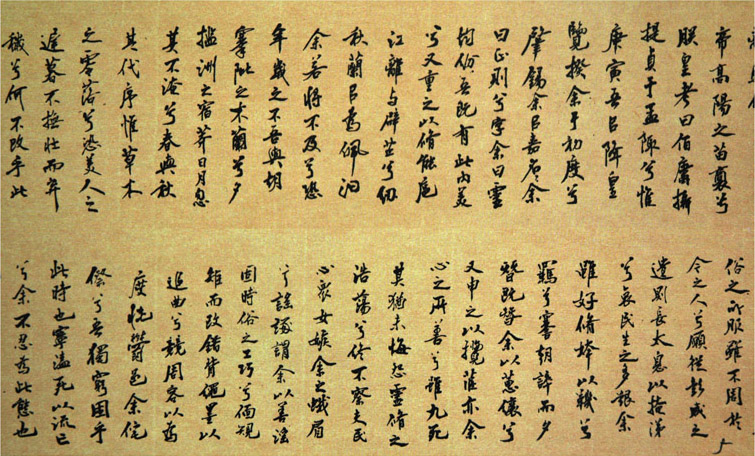 帝高陽之苗裔兮
朕皇考曰伯庸攝
提貞于孟陬兮惟
庚寅吾㠯降皇
覽揆余于初度兮
肇錫余㠯嘉名余
曰正則兮字余曰靈
均紛吾既有此內美
兮又重之以脩能扈
江離与辟芷兮紉
秋蘭㠯為佩汩
余若將不及兮恐
年歲之不吾與朝
搴阰之木蘭兮夕
攬洲之宿莽日月忽
其不淹兮春與秋
其代序惟草木
之零落兮恐美人之
遲暮不撫壯而棄
穢兮何不改乎此
俗之所服雖不周於
今之人兮願從彭咸之
遺則長太息以掩涕
兮哀民生之多艱余
雖好脩姱以鞿
羈兮謇朝誶而夕
替既替余以蕙纕兮
又申之以攬茝亦余
心之所善兮雖九死
其猶未悔怨靈脩之
浩蕩兮終不察夫民
心衆女嫉余之蛾眉
兮謠諑謂余以善淫
固時俗之工巧兮偭規
矩而改錯背繩墨以
追曲兮競周容以為
度忳鬱邑余侘
傺兮吾獨窮困乎
此時也寧溘死以流亡
兮余不忍為此態也